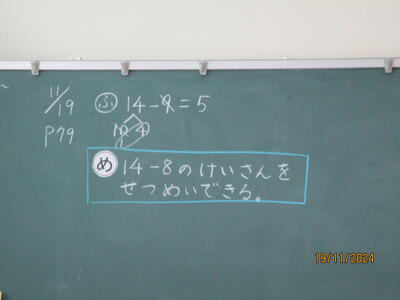 11/19
P79
ふ 14-9=5
10 4
め 14-8のけいさんを
せつめいできる。
19/11/2024